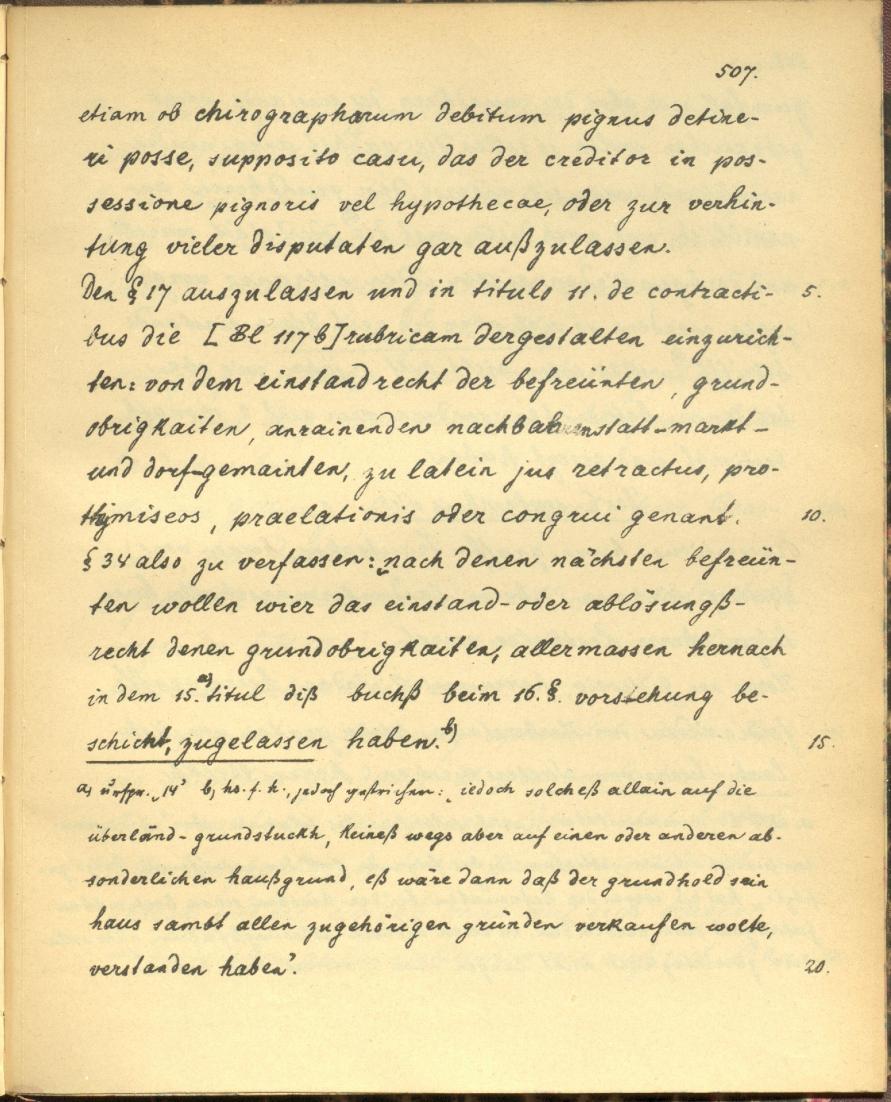 507.
etiam ob chirographarum debitum pignus detine-
ri posse, supposito casu, das der creditor in pos-
sessione pignoris vel hypothecae, oder zur verhin-
tung vieler disputaten gar außzulassen.
Den § 17 auszulassen und in titulo 11. de contracti- 5.
bus die [Bl 117 b] rubricam dergestalten einzurich-
ten: von dem einstandrecht der befreünten, grund-
obrigkaiten, anrainenden nachbahren statt-markt-
und dorf-gemainten, zu latein jus retractus, pro-
thymiseos, praelationis oder congrui genant. 10.
§ 34 also zu verfassen: nach denen nächsten befreün-
ten wollen wier das einstand- oder ablösungß-
recht denen grundobrigkaiten, allermassen hernach
in dem 15. a) titul diß buchß beim 16. §. vorstehung be-
schicht, zugelassen haben. b) 15.
a) urspr. „14" b) hs. f. h., jedoch gestrichen: „iedoch solcheß allain auf die
überländ-grundstuckh, keineß wegs aber auf einen oder anderen ab-
sonderlichen haußgrund, eß wäre dann daß der grundhold sein
haus sambt allen zugehörigen gründen verkaufen wolte,
verstanden haben". 20.